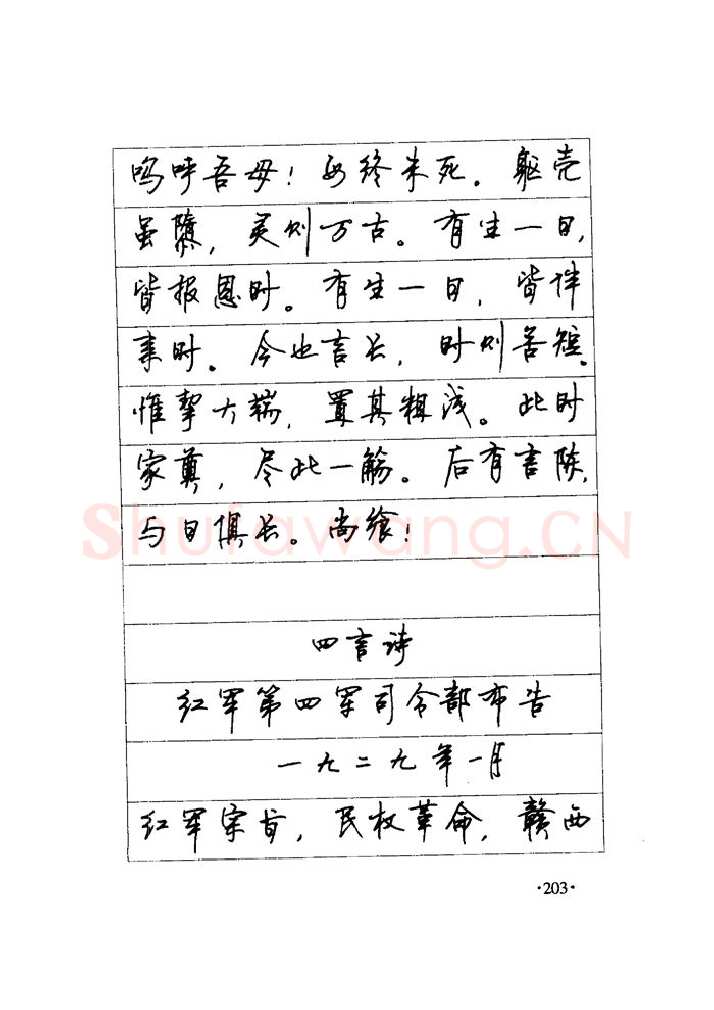 呜呼吾母！母终未死。躯壳
虽隳，灵则万古。有生一日，
皆报恩时。有生一日，皆伴
亲时。今也言长，时则苦短。
惟挈大端，置其粗浅。此时
家奠，尽此一觞。后有言陈，
与日俱长。尚飨！
Shufawang.CN
四言诗
红军第四军司令部布告
一九二九年一月
红军宗旨，民权革命，赣西
·203·